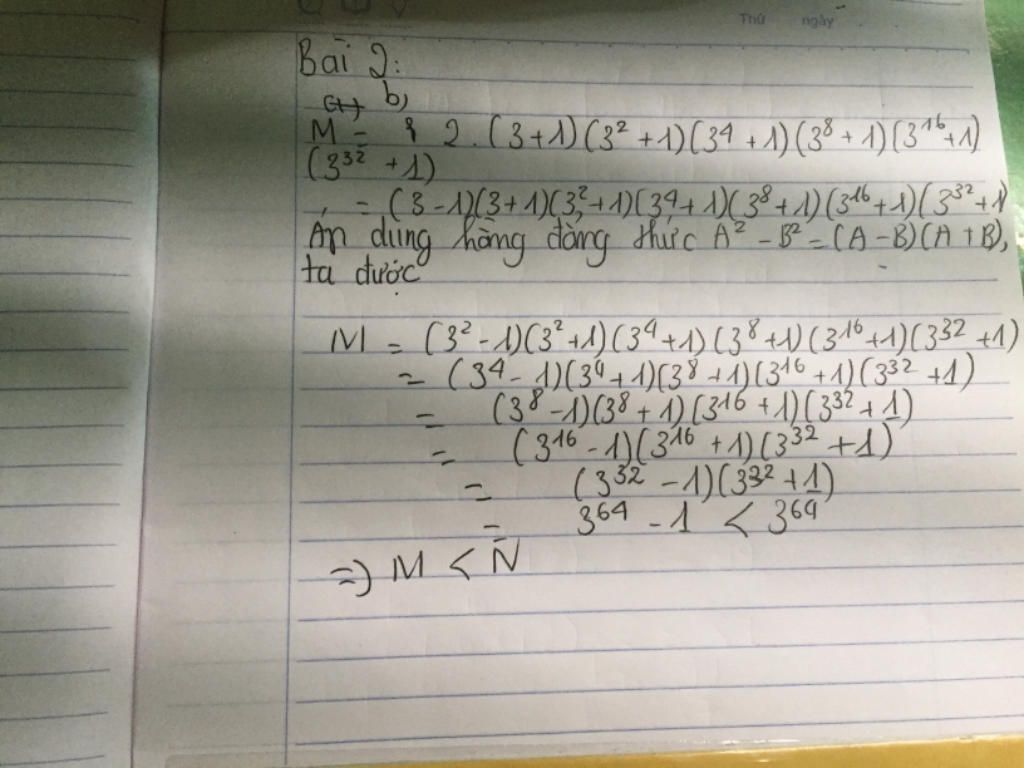 Thứ ngày
Bài 2:
b,
M = 2.(3+1)(3²+1)(3⁴+1)(3⁸+1)(3¹⁶+1)
(3³²+1)
= (3-1)(3+1)(3²+1)(3⁴+1)(3⁸+1)(3¹⁶+1)(3³²+1)
Áp dụng hằng đẳng thức A² - B² = (A-B)(A+B),
ta được
M = (3²-1)(3²+1)(3⁴+1)(3⁸+1)(3¹⁶+1)(3³²+1)
= (3⁴-1)(3⁴+1)(3⁸+1)(3¹⁶+1)(3³²+1)
= (3⁸-1)(3⁸+1)(3¹⁶+1)(3³²+1)
= (3¹⁶-1)(3¹⁶+1)(3³²+1)
= (3³²-1)(3³²+1)
= 3⁶⁴ - 1 < 3⁶⁴
=> M < N